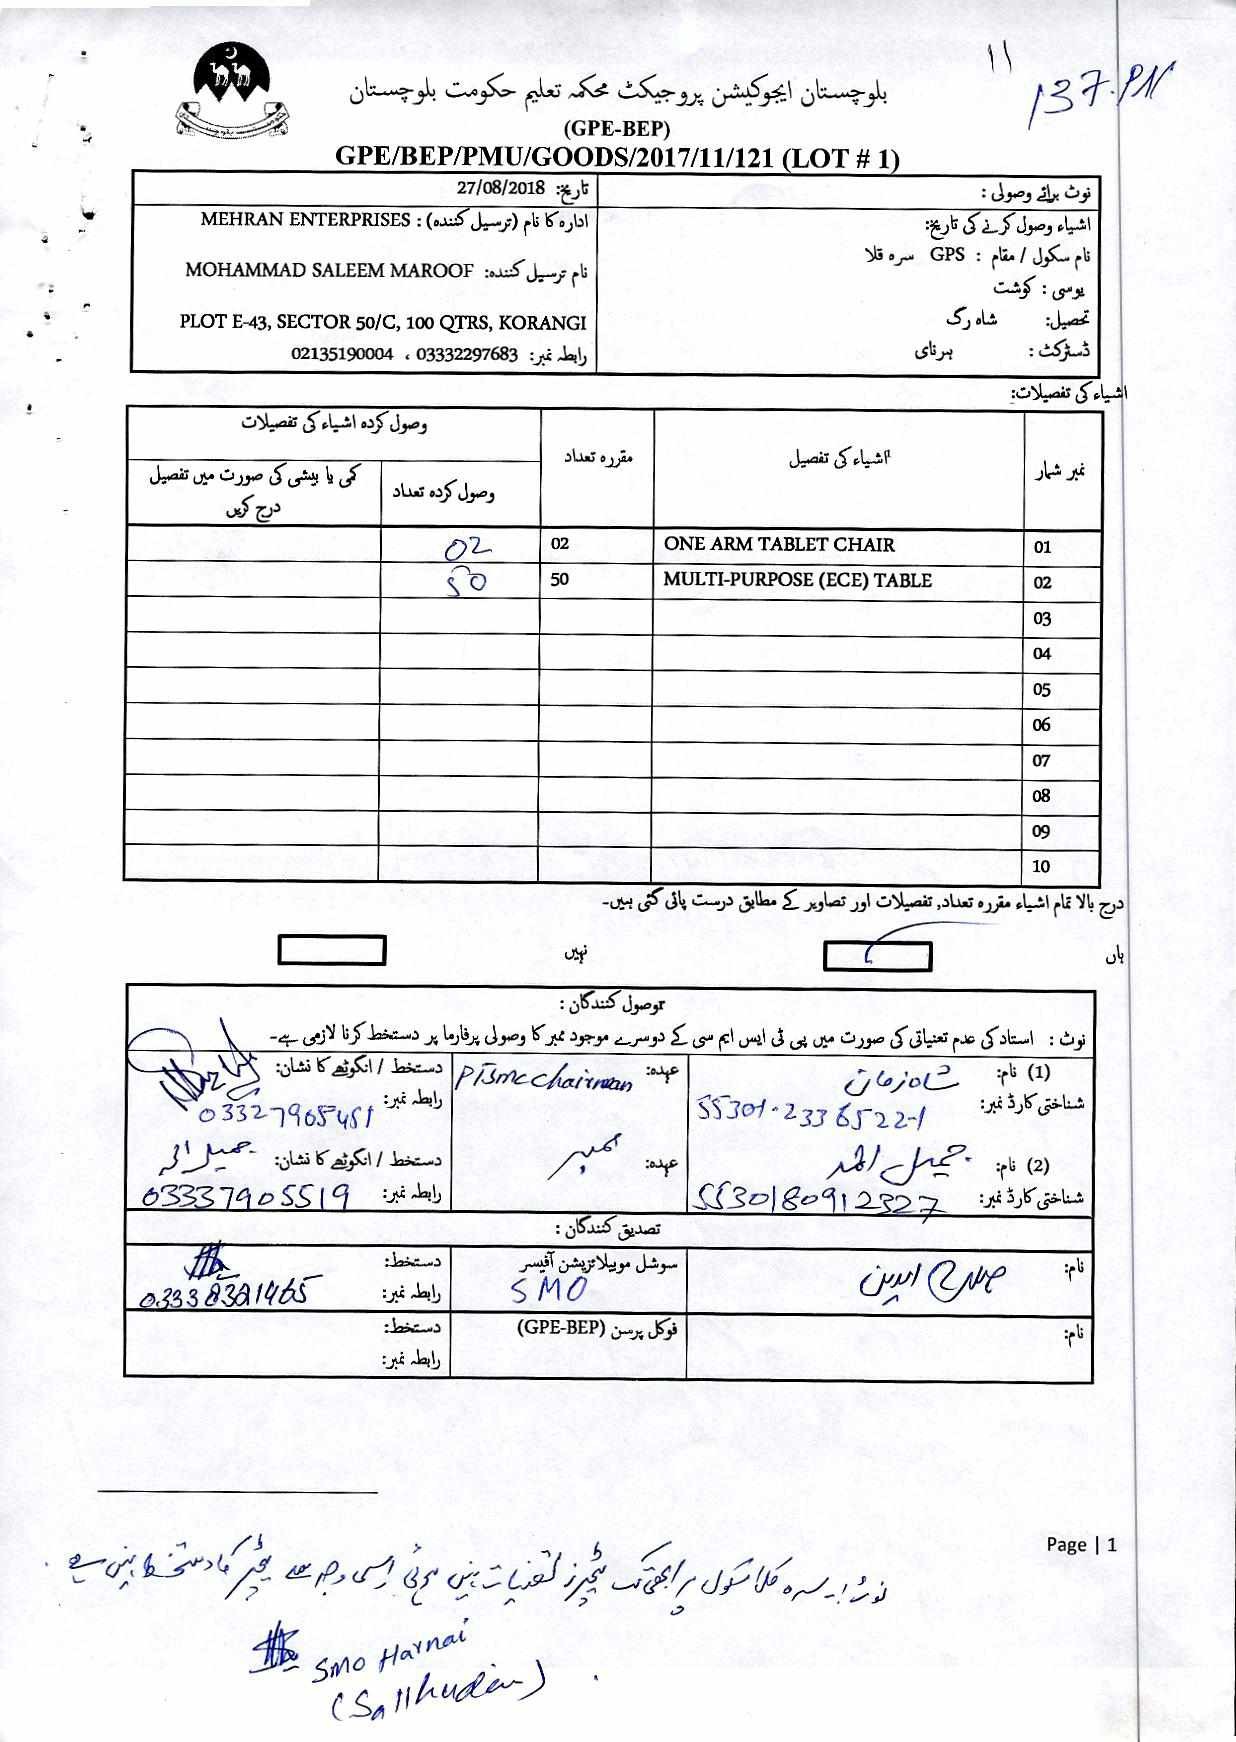 11
137.PN
بلوچستان ایجوکیشن پروجیکٹ محکمہ تعلیم حکومت بلوچستان
(GPE-BEP)
GPE/BEP/PMU/GOODS/2017/11/121 (LOT # 1)
نوٹ برائے وصولی :
تاریخ: 27/08/2018
اشیاء وصول کرنے کی تاریخ:
نام سکول / مقام : GPS سرہ قلا
یوسی : کوشت
تحصیل: شاہ رگ
ڈسٹرکٹ : ہرنای
ادارہ کا نام (ترسیل کنندہ) : MEHRAN ENTERPRISES
نام ترسیل کنندہ: MOHAMMAD SALEEM MAROOF
PLOT E-43, SECTOR 50/C, 100 QTRS, KORANGI
رابطہ نمبر: 03332297683 ، 02135190004
اشیاء کی تفصیلات:
نمبر شمار اشیاء کی تفصیل مقررہ تعداد وصول کردہ اشیاء کی تفصیلات
وصول کردہ تعداد کمی یا بیشی کی صورت میں تفصیل درج کریں
01 ONE ARM TABLET CHAIR 02 02
02 MULTI-PURPOSE (ECE) TABLE 50 50
03
04
05
06
07
08
09
10
درج بالا تمام اشیاء مقررہ تعداد, تفصیلات اور تصاویر کے مطابق درست پائی گئی ہیں۔
ہاں نہیں
وصول کنندگان :
نوٹ : استاد کی عدم تعیناتی کی صورت میں پی ٹی ایس ایم سی کے دوسرے موجود ممبر کا وصولی پرفارما پر دستخط کرنا لازمی ہے۔
(1) نام: شاہ زمان عہدہ: PTSMC Chairman دستخط / انگوٹھے کا نشان:
شناختی کارڈ نمبر: 55301-2336522-1 رابطہ نمبر: 03327905451
(2) نام: جمیل احمد عہدہ: ممبر دستخط / انگوٹھے کا نشان: جمیل احمد
شناختی کارڈ نمبر: 5530180912327 رابطہ نمبر: 03337905519
تصدیق کنندگان :
نام: صلاح الدین سوشل موبیلائزیشن آفیسر SMO دستخط:
رابطہ نمبر: 03338321465
نام: فوکل پرسن (GPE-BEP) دستخط:
رابطہ نمبر:
Page | 1
نوٹ: سرہ قلا سکول پر ابھی تک ٹیچرز تعنیات نہیں ہوئی اسی وجہ سے ٹیچر کا دستخط نہیں ہے
SMO Harnai
(Sallhudin)